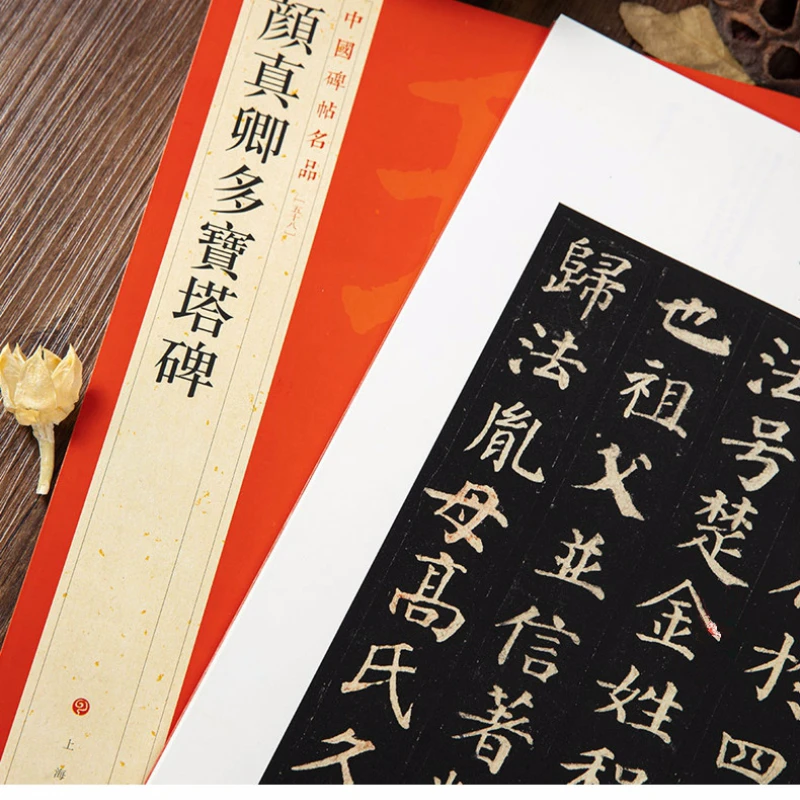 中國碑帖名品
[五十八]
顏真卿多寶塔碑
上海
於四
法号楚金姓
也祖父並信著
歸法胤母高氏久